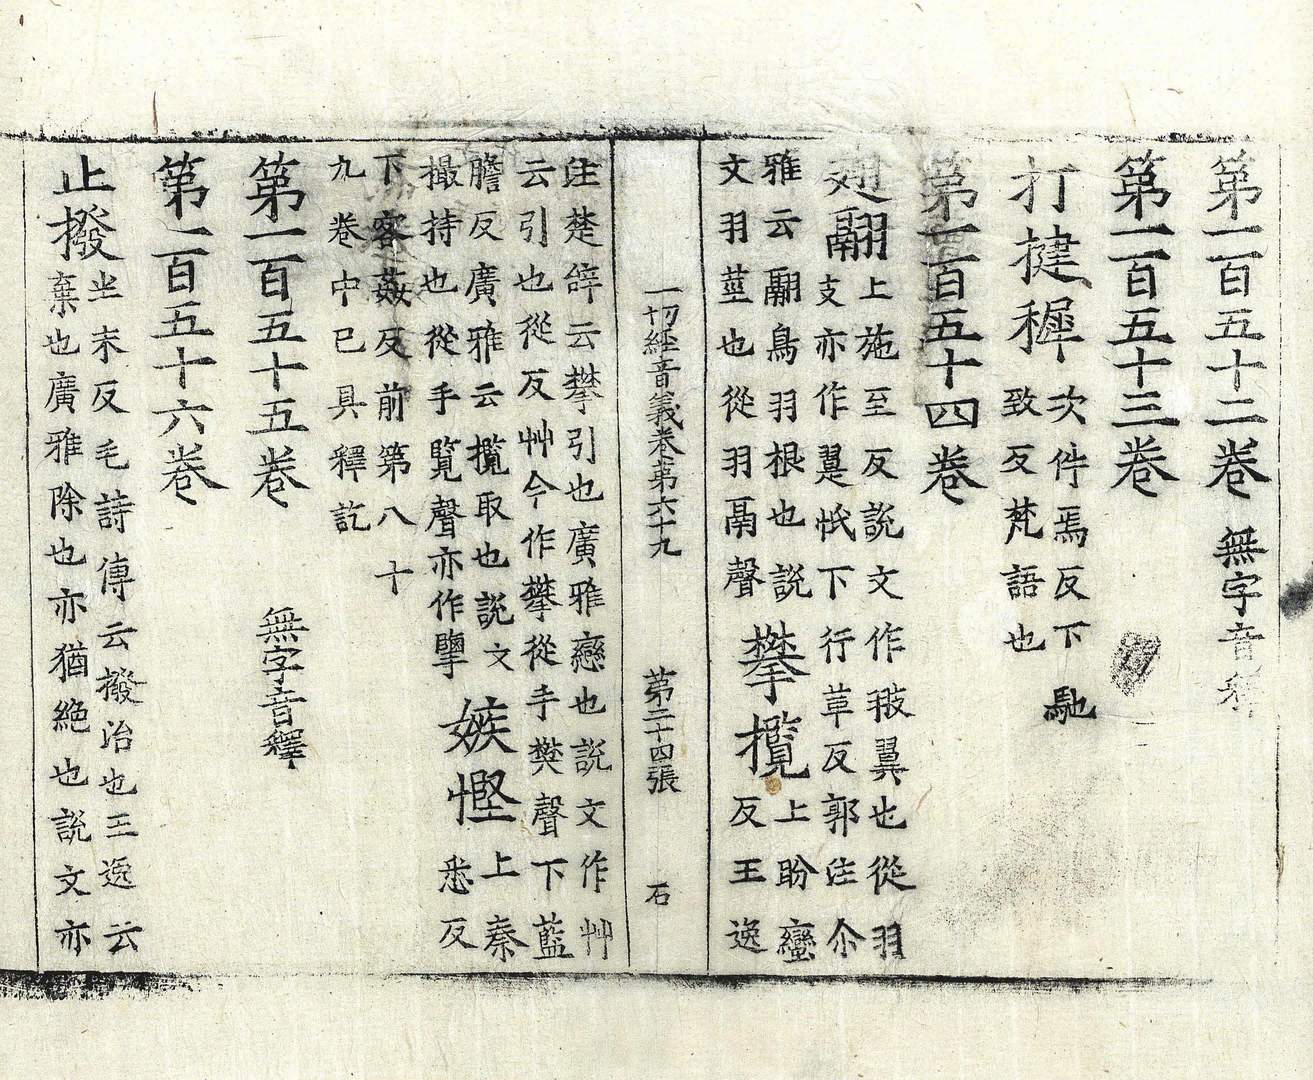 第一百五十二卷 無字音釋
第一百五十三卷
打揵稺 次件焉反下馳
致反梵語也
第一百五十四卷
翅翮 上施至反説文作翄翼也從羽
支亦作翼𢗗下行革反郭注尒
雅云翮鳥羽根也説
文羽莖也從羽鬲聲 攀攬 上盼巒
反王逸
一切経音義卷第六十九 第二十四張 石
注楚辝云攀引也廣雅戀也説文作艸
云引也從反艸今作攀從手樊聲下藍
膽反廣雅云攬取也説文
撮持也從手覽聲亦作擥 嫉慳 上秦
悉反
下客葌反前第八十
九卷中已具釋訖
第一百五十五卷 無字音釋
第一百五十六卷
止撥 㘴末反毛詩傳云撥治也王逸云
棄也廣雅除也亦猶絶也説文亦